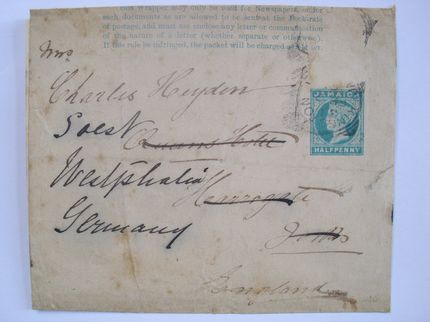 on Wrapper may only be used for Newspapers, or for
such documents as are allowed to be sent at the Book-rate
of postage, and must not enclose any letter or communication
of the nature of a letter (whether separate or otherwise).
If this rule be infringed, the packet will be charged as a letter.
Mrs
Charles Heyden
JAMAICA
HALFPENNY
Soest
Queens Hotel
Westphalia
Harrogate
Germany
England